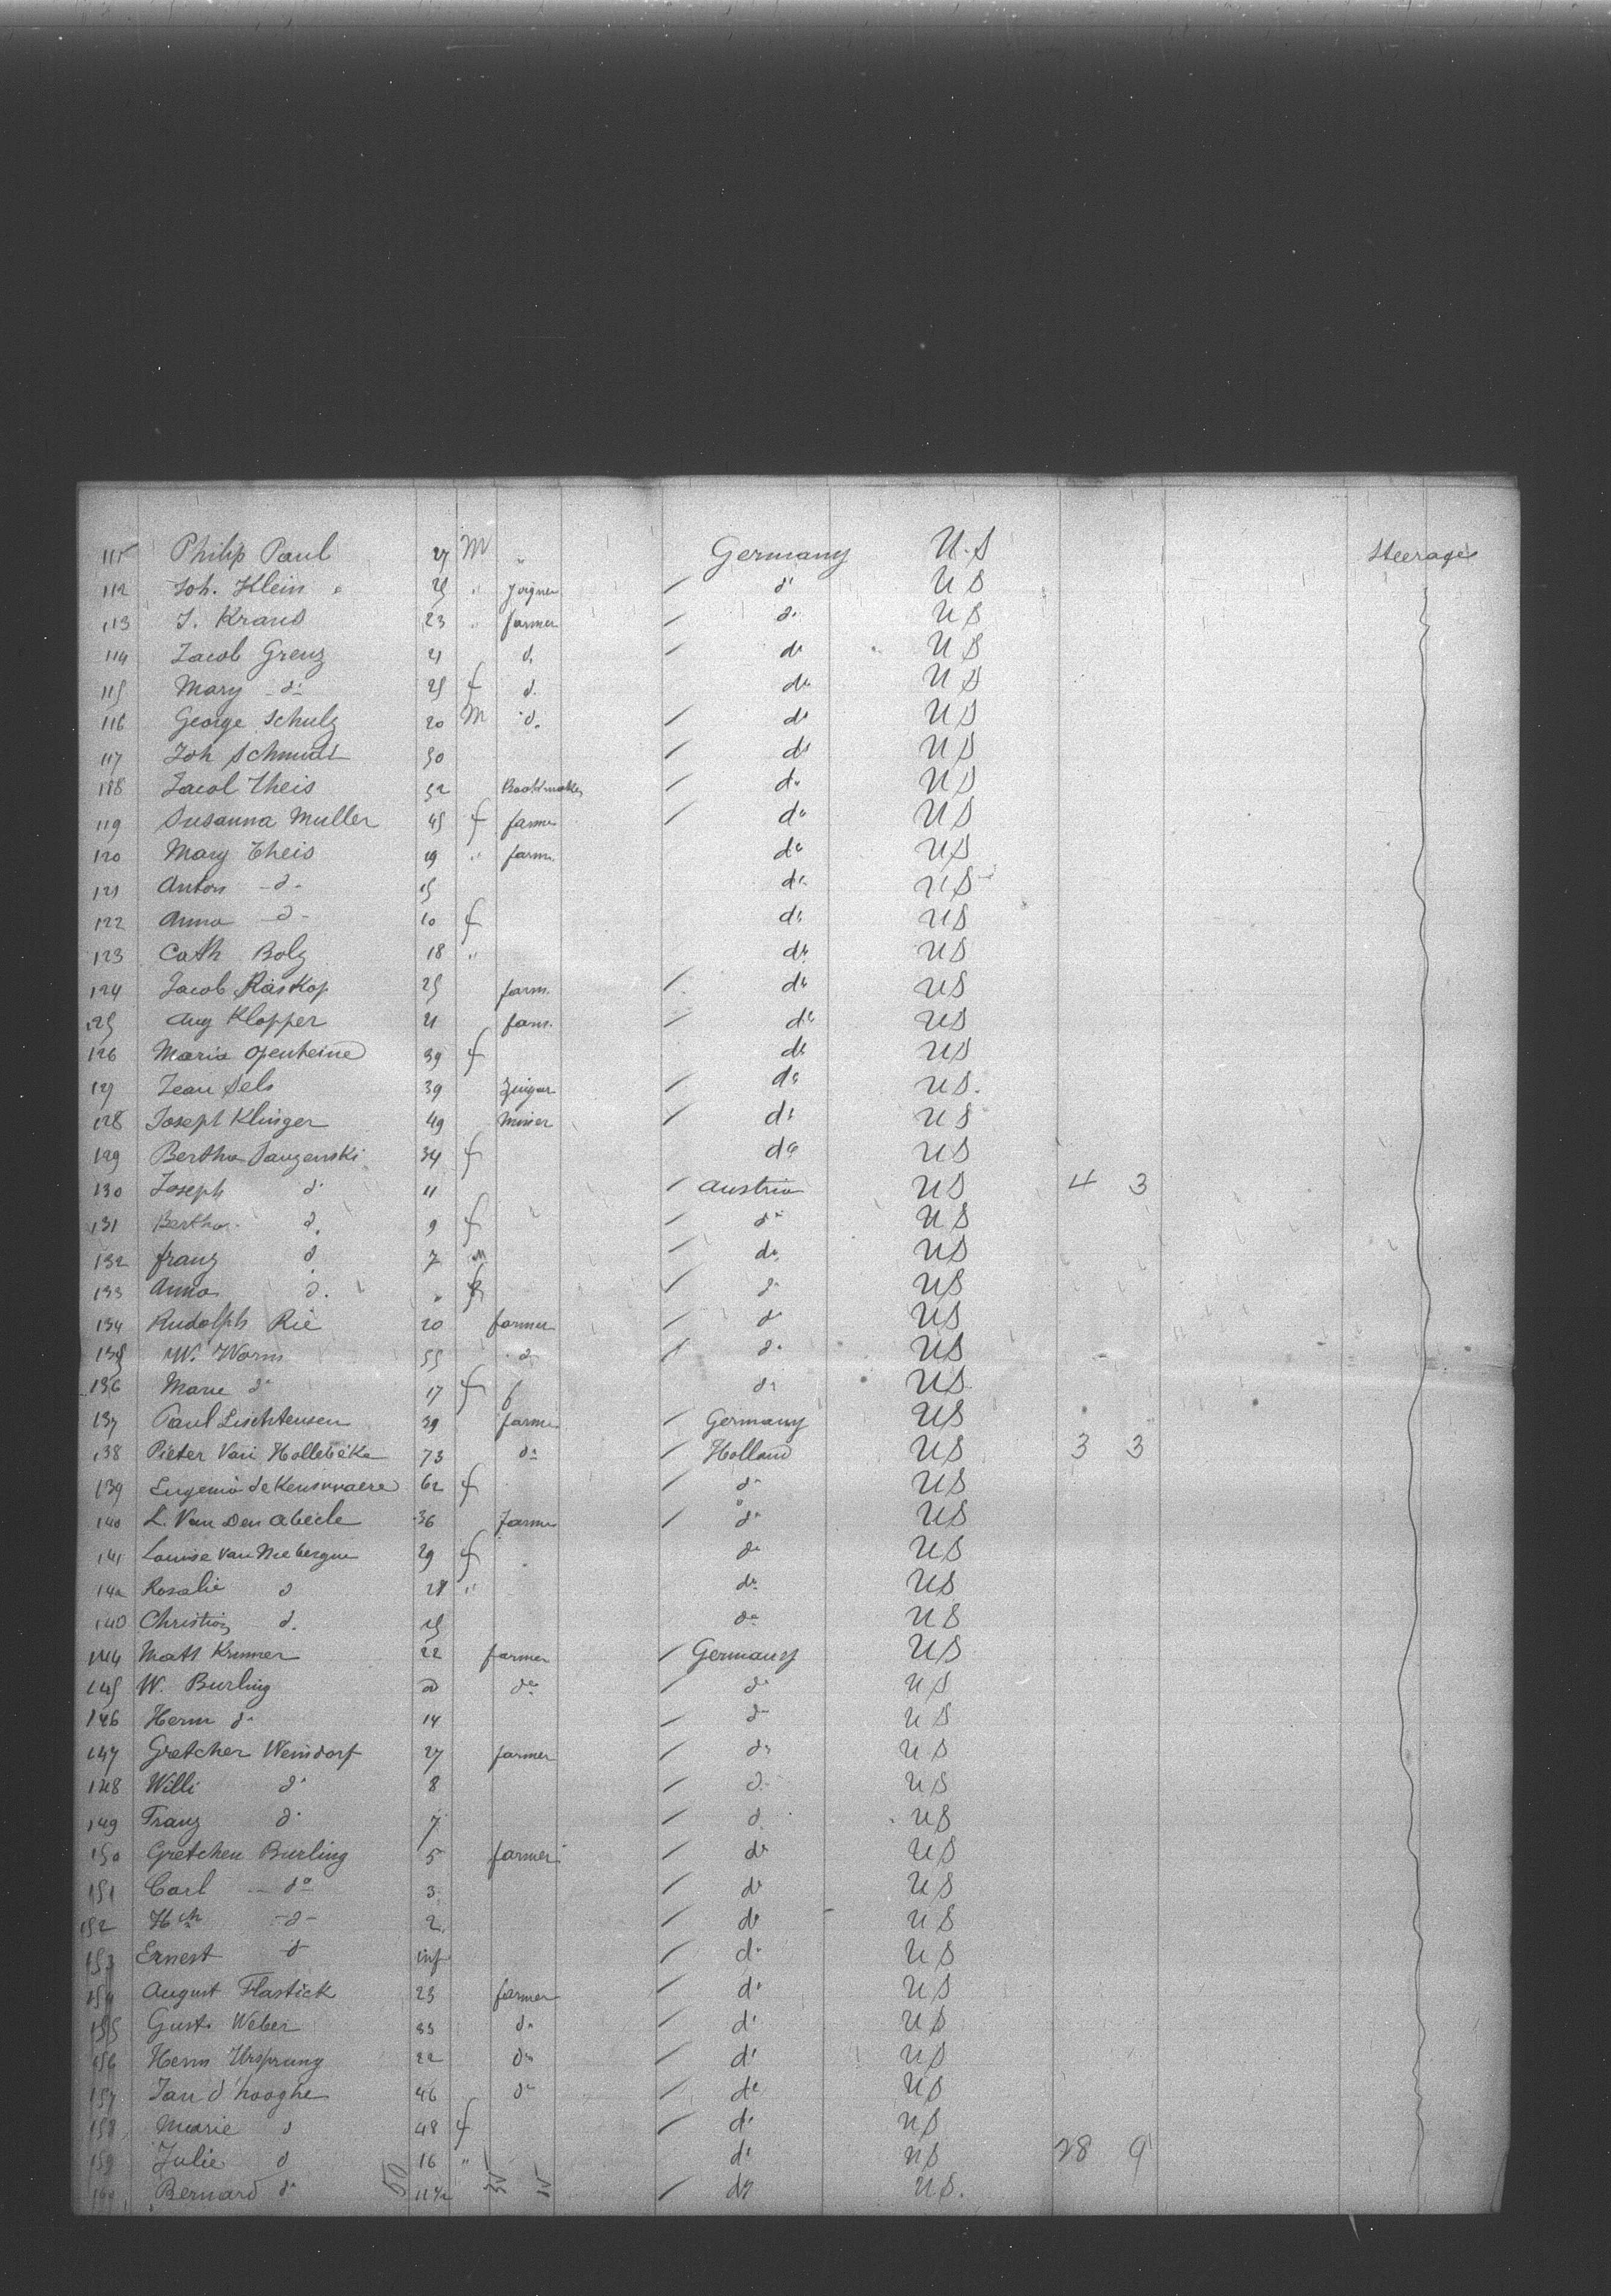 111 Philip Paul 27 M " Germany U.S Steerage
112 Joh. Klein 25 " joigner / do U S
113 J. Kraus 23 " farmer / do U S
114 Jacob Grenz 21 do / do U S
115 Mary - do 25 f do do U S
116 George Schulz 20 M do / do U S
117 Joh Schmidt 30 / do U S
118 Jacob Theis 52 / do U S
119 Susanna Muller 45 f farmer / do U S
120 Mary Theis 19 " farm. do U S
121 Anton - do - 15 do U S
122 Anna - do - 10 f do U S
123 Cath Bolz 18 " do U S
124 Jacob Raskop 25 farm. / do U S
125 Aug Klopper 21 farm. / do U S
126 Maria Openheine 39 f do U S
127 Jean Sels 39 / do U S.
128 Joseph Klinger 49 miner / do U S
129 Bertha 34 f do U S
130 Joseph do 11 / Austria U S 4 3
131 Bertha do 9 f / do U S
132 franz do 7 m / do U S
133 Anna do " f / do U S
134 Rudolph Rie 20 farmer / do U S
135 W. Worm 55 do / do U S
136 Marie do 17 f do U S
137 Paul Lischtensen 39 farmer / Germany U S
138 Pieter Van Hollebeke 73 do / Holland U S 3 3
139 Eugenio de 62 f / do U S
140 L. Van Den Abeele 36 farmer / do U S
141 Louise Van 29 f do U S
142 Rosalie do 28 " do U S
143 Christian do 25 do U S
144 Matt Krimer 22 farmer / Germany U S
145 W. Burling do / do U S
146 Herm do 14 / do U S
147 Gretcher Weinsdorf 27 farmer / do U S
148 Willi do 8 / do U S
149 Franz do 7 / do U S
150 Gretchen Burling 5 farmer / do U S
151 Carl - do 3 / do U S
152 Hch - do - 2 / do U S
153 Ernest do inf / do U S
154 August Flastick 23 farmer / do U S
155 Gust. Weber 33 do / do U S
156 Herm Ursprung 22 do / do U S
157 Jan d'hooghe 46 do / do U S
158 Marie do 48 f / do U S
159 Julie do 16 " do U S 28 9
160 Bernard do 11 1/2 / do U S.